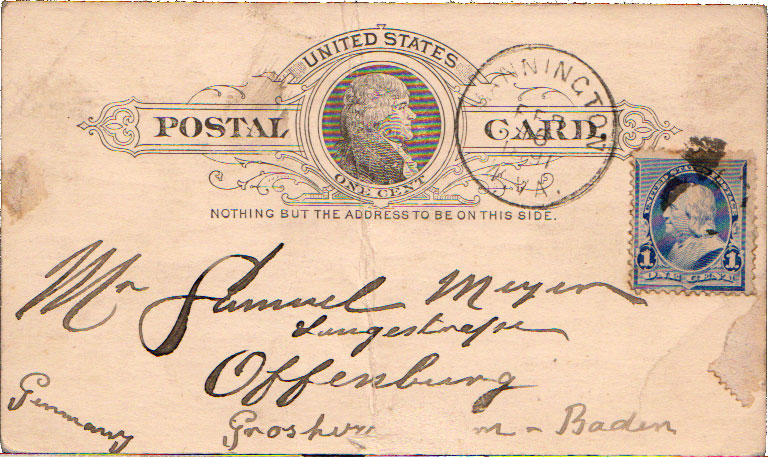 UNITED STATES
POSTAL CARD.
ONE CENT
NOTHING BUT THE ADDRESS TO BE ON THIS SIDE.
NNINGTON
VA.
1 1
ONE CENT
Mr Samuel Meyer
Langestraße
Offenburg
Germany
Baden